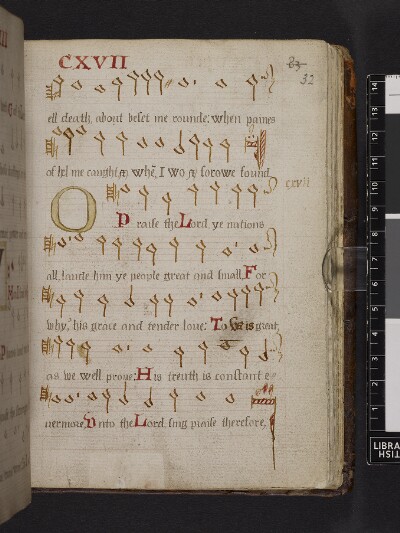 CXVII
83
32
ell death about beset me rounde: when panges
of hel me caught
I wo
sorowe found
cxvii
O
Praise the Lord ye nations
all, laude him ye people great and small, For
why, his grace and tender love: To us is great,
as we well prove: His treuth is constant e-
vermore Unto the Lord sing praise therefore,